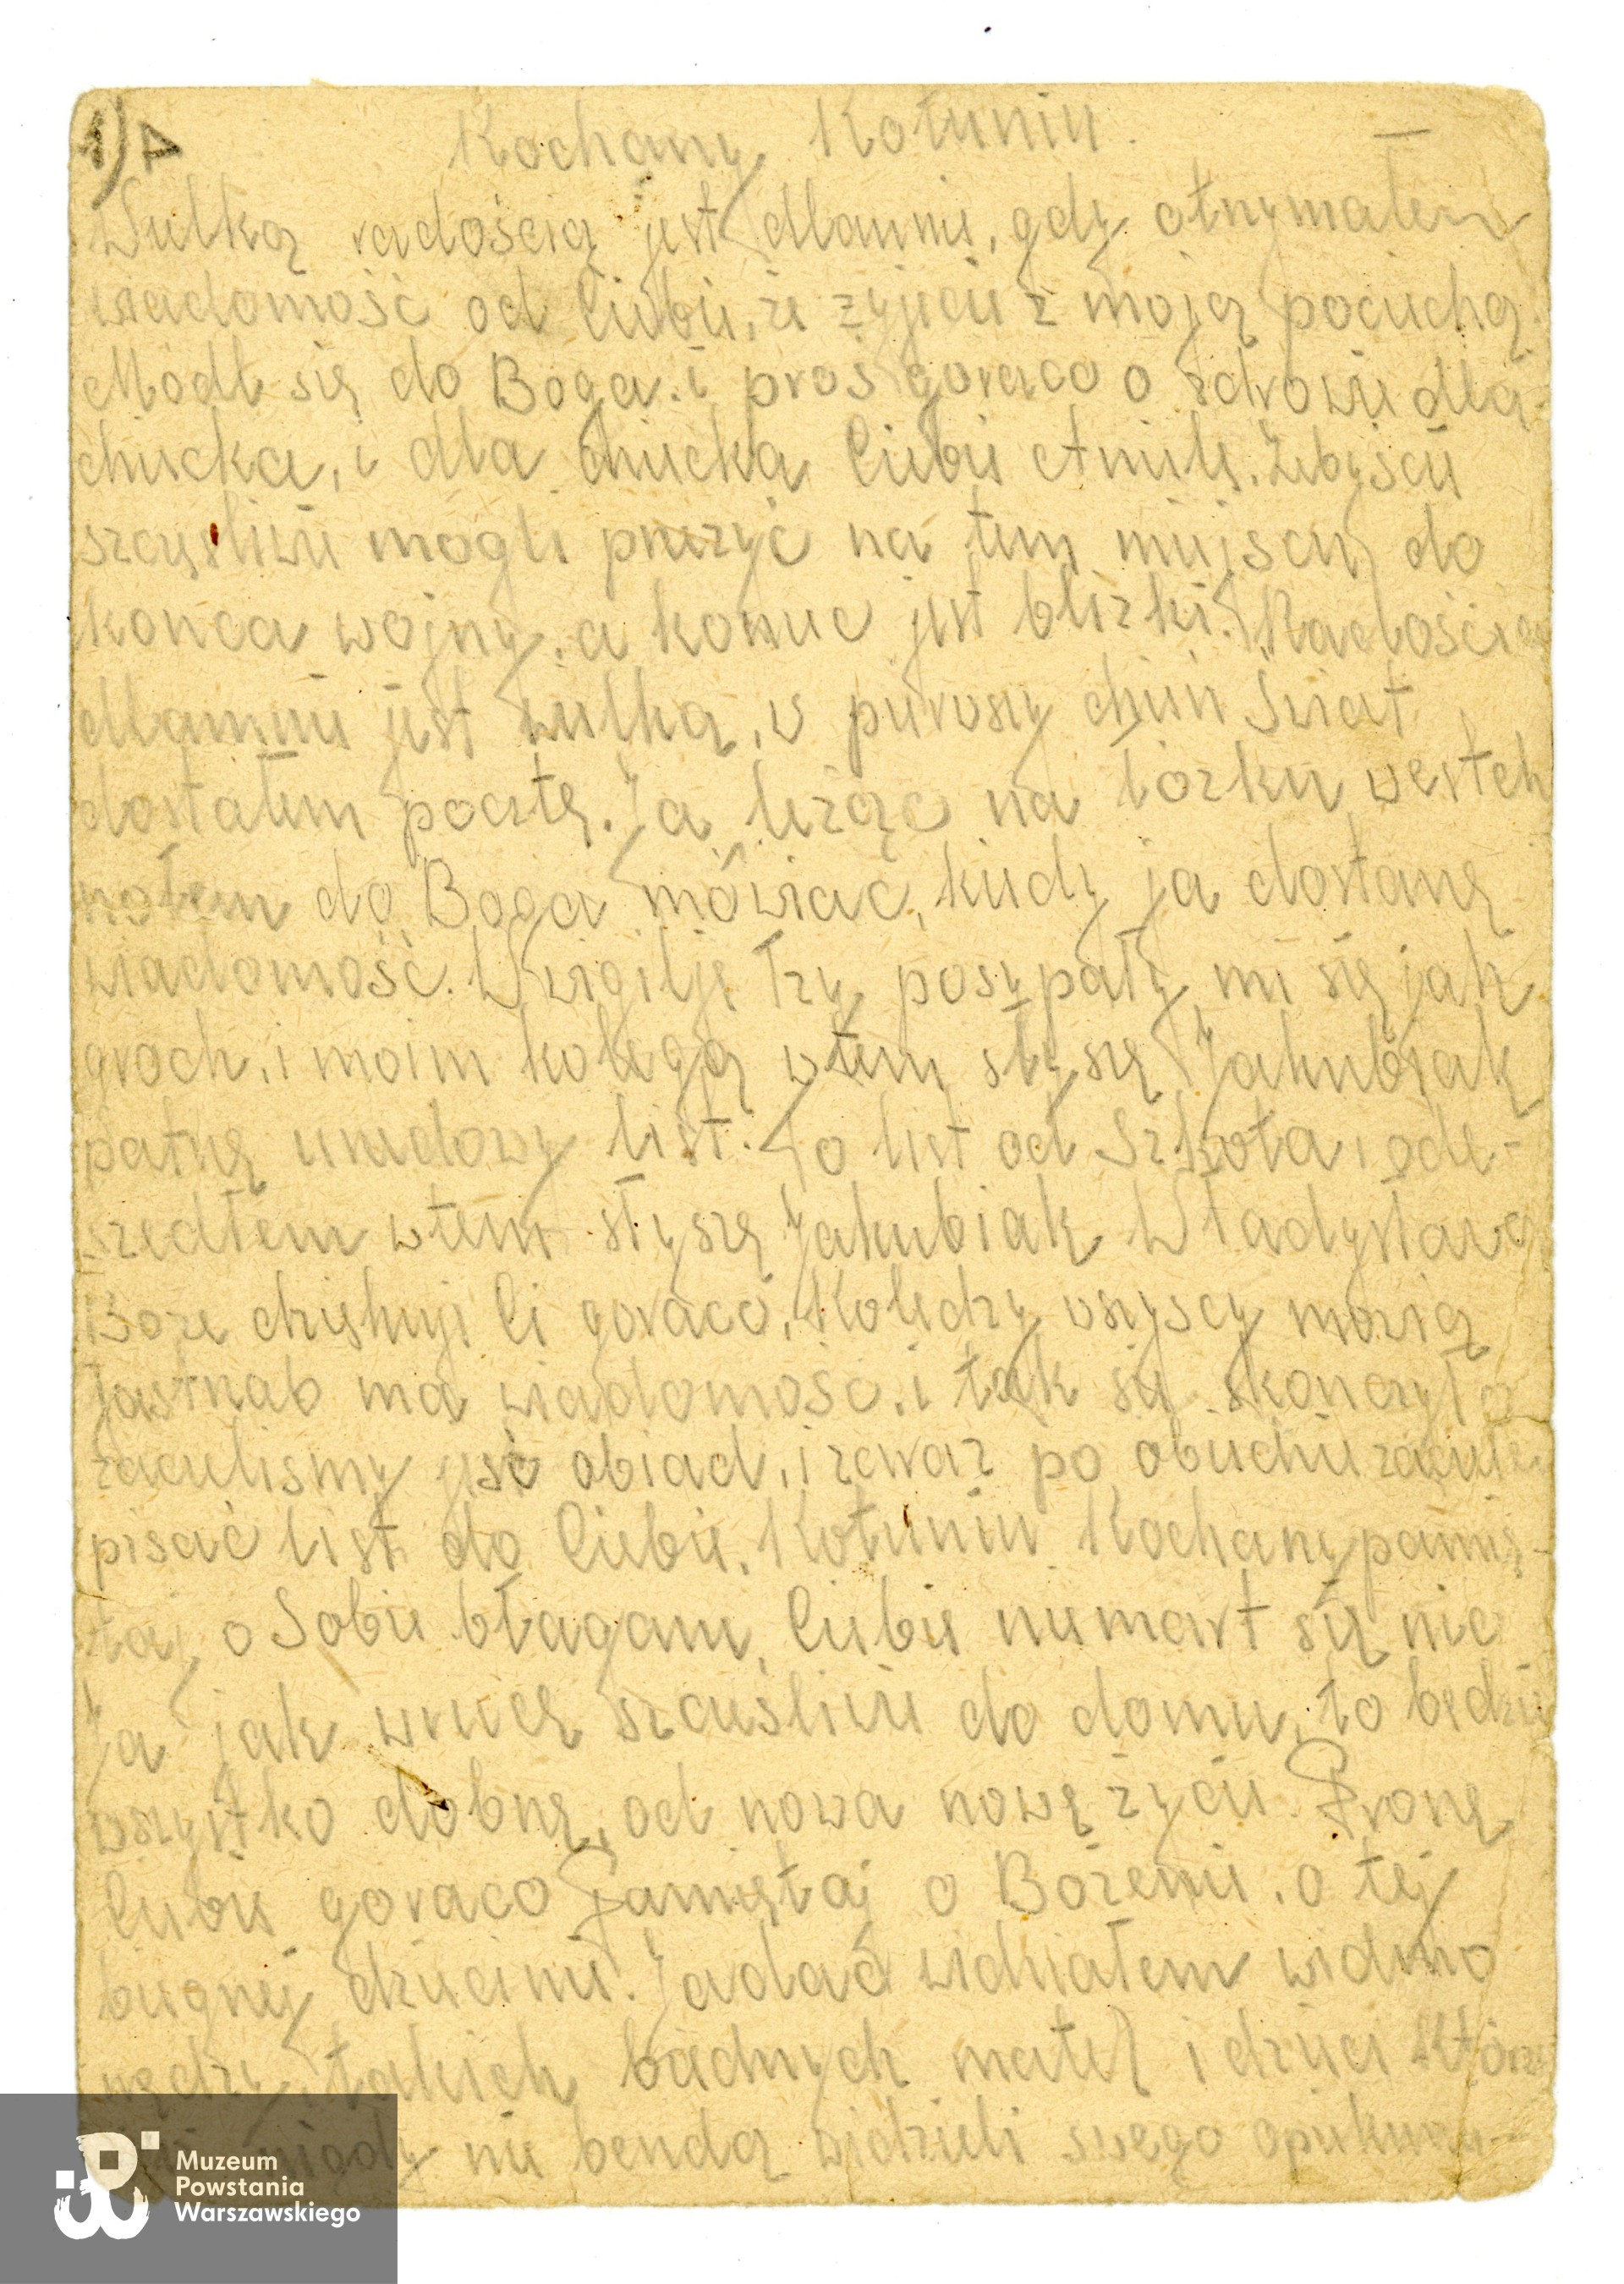 1) A
Kochany Kotuniu.
Wielką radością jest dlamnie, gdy otrzymałem
wiadomość od Ciebie, że żyjecie z moją pociechą.
Módl się do Boga. i proś goraco o zdrowie dla
dziecka, i dla dziecka Ciebie Żebyście
szczęsliwie mogli przeżyć na tem miejscu do
konca wojny. a koniec jest blizki. Radościa
dlamnie jest wielką, w pierwszy dzien Swiąt
dostałem pocztę. Ja leżąc na łozku westch
nołem do Boga mówiac, kiedy ja dostanę
wiadomość. W wigilję łzy posypały mi się jak
groch, i moim kolegą wtem słyszę Jakubiak
patrzę urzedowy list. To list od Szkoła i ode-
szedłem wtem słyszę Jakubiak Władysław
Boze dziękuje Ci goraco, Koledzy wszyscy mówią
Jastrzab ma wiadomość. i tak się skonczyło
zaczelismy jeść obiad, i zaraz po obiedzie
pisać list do Ciebie. Kotuniu Kochany pamię-
taj o Sobie błagam Ciebie niemart się nic
Ja jak wrucę szcześliwie do domu, to będzie
wszystko dobrzę, od nowa nowę życie Proszę
Ciebie goraco Pamiętaj o Bożenie. o tej
biednej dziecinie. Jadać widziałem widmo
nędzy, takich biednych matek i dzieci Które
nigdy nie bendą widzieli swego opiekuna
Muzeum
Powstania
Warszawskiego